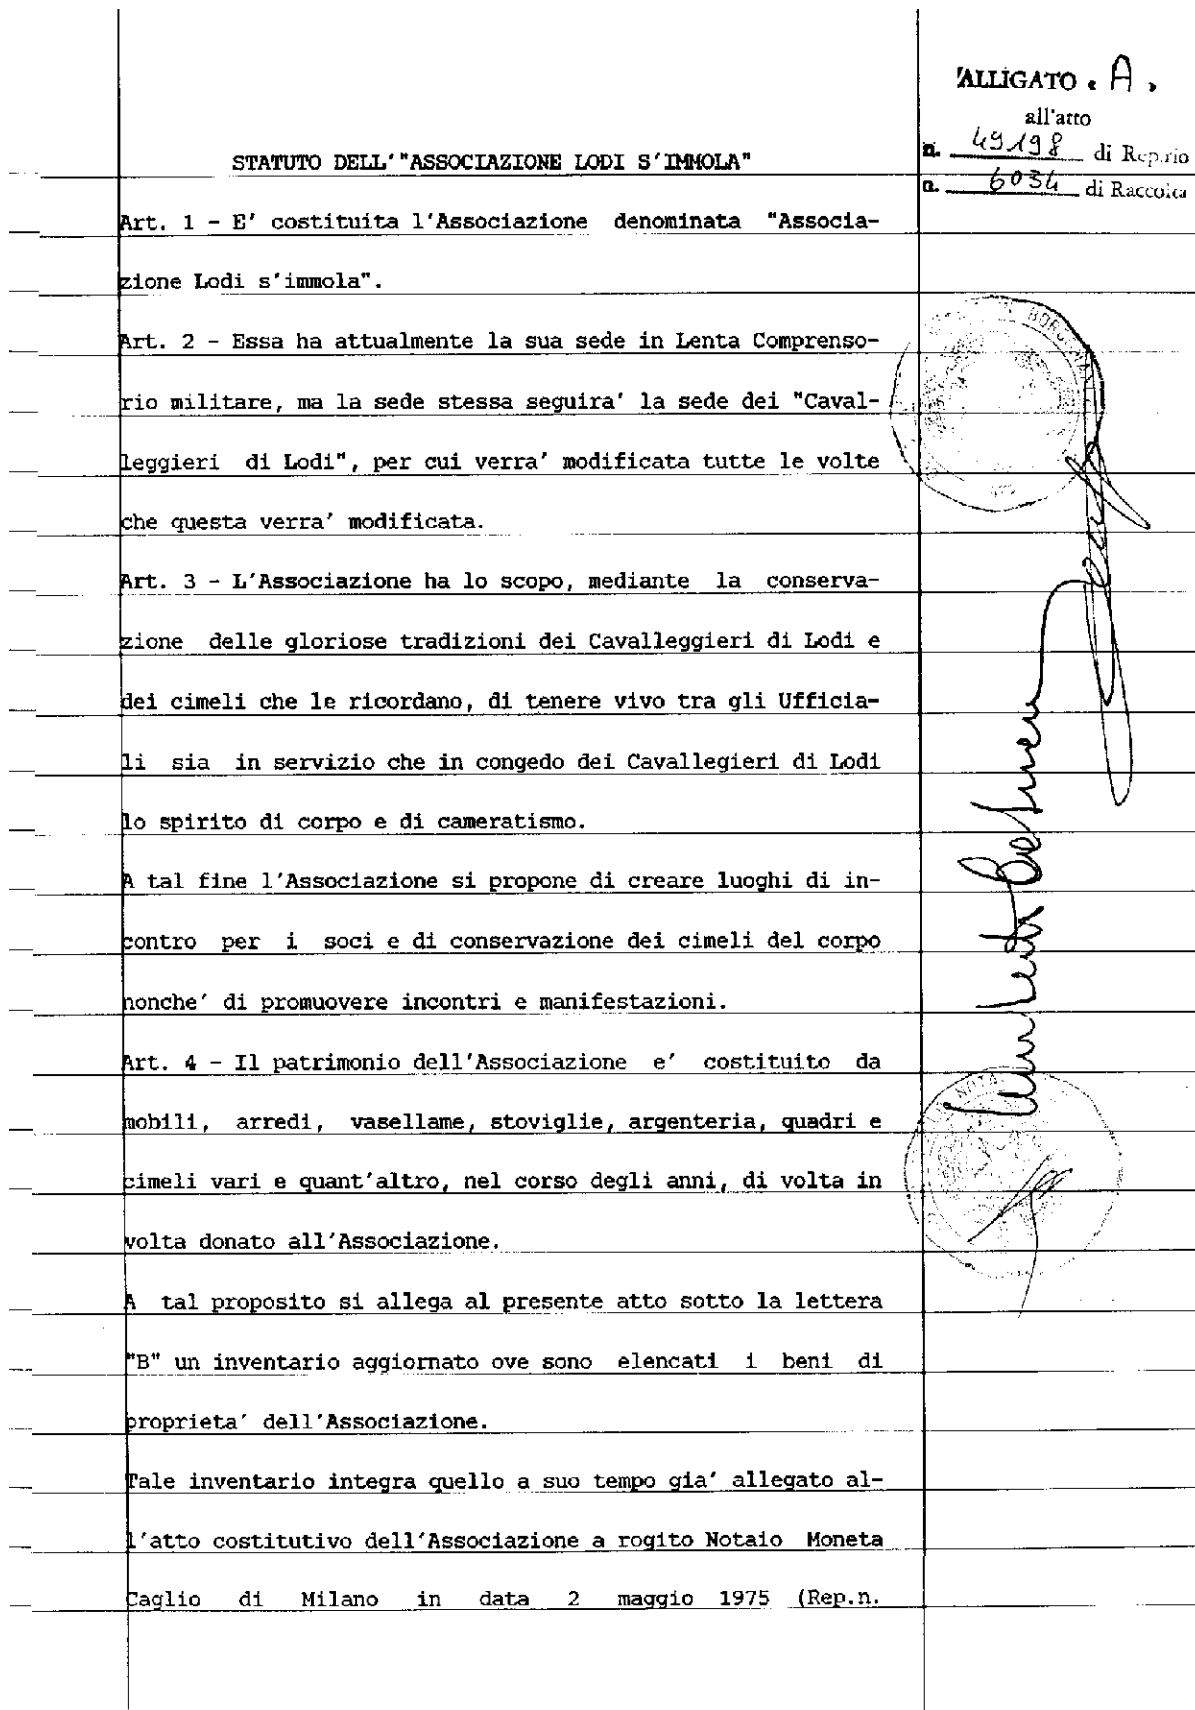 ALLIGATO « A »
all'atto
n. 49198 di Rep.rio
n. 6034 di Raccolta
STATUTO DELL'"ASSOCIAZIONE LODI S'IMMOLA"
Art. 1 - E' costituita l'Associazione denominata "Associa-
zione Lodi s'immola".
Art. 2 - Essa ha attualmente la sua sede in Lenta Comprenso-
rio militare, ma la sede stessa seguira' la sede dei "Caval-
leggieri di Lodi", per cui verra' modificata tutte le volte
che questa verra' modificata.
Art. 3 - L'Associazione ha lo scopo, mediante la conserva-
zione delle gloriose tradizioni dei Cavalleggieri di Lodi e
dei cimeli che le ricordano, di tenere vivo tra gli Ufficia-
li sia in servizio che in congedo dei Cavallegieri di Lodi
lo spirito di corpo e di cameratismo.
A tal fine l'Associazione si propone di creare luoghi di in-
contro per i soci e di conservazione dei cimeli del corpo
nonche' di promuovere incontri e manifestazioni.
Art. 4 - Il patrimonio dell'Associazione e' costituito da
mobili, arredi, vasellame, stoviglie, argenteria, quadri e
cimeli vari e quant'altro, nel corso degli anni, di volta in
volta donato all'Associazione.
A tal proposito si allega al presente atto sotto la lettera
"B" un inventario aggiornato ove sono elencati i beni di
proprieta' dell'Associazione.
Tale inventario integra quello a suo tempo già' allegato al-
l'atto costitutivo dell'Associazione a rogito Notaio Moneta
Caglio di Milano in data 2 maggio 1975 (Rep.n.